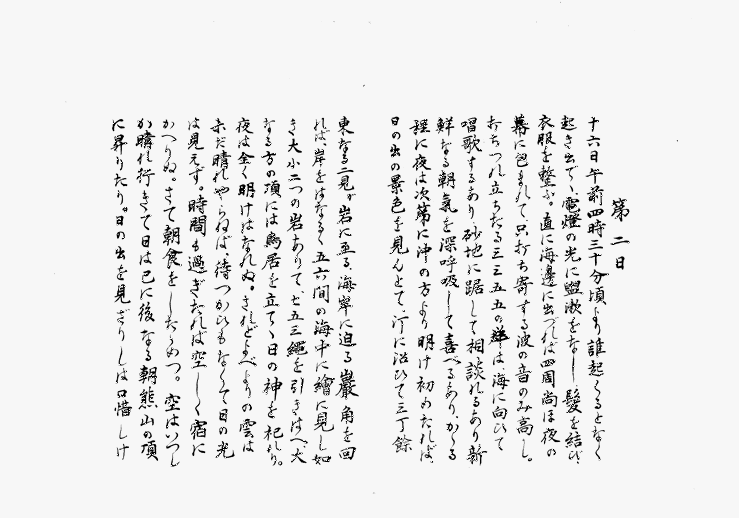 第二日
十六日午前四時三十分頃より誰起くるとなく
起き出で、電燈の光に盥漱をなし、髮を結び、
衣服を整ふ。直に海邊に出づれば四周尚ほ夜の
幕に包まれて只打ち寄する波の音のみ高し。
打ちつれ立ちたる三三五五の群は海に向ひて
唱歌するあり、砂地に踞して相談れるあり、新
鮮なる朝氣を深呼吸して喜べるあり、かゝる
程に夜は次第に沖の方より明け初めたれば、
日の出の景色を見んとて、汀に沿ひて三丁餘
東なる二見が岩に至る、海岸に迫る巖角を回
れば、岸をはなるゝ五六間の海中に繪に見し如
き大小二つの岩ありて、七五三繩を引きはへ、大
なる方の項には鳥居を立てゝ日の神を祀れり。
夜は全く明けはなれぬ。されどよべよりの雲は
未だ晴れやらねば、待つかひもなくて日の光
は見えず。時間も過ぎたれば空しく宿に
かへりぬ。さて朝食をしたゝめつ。空はいつし
か晴れ行きて日は已に後なる朝熊山の項
に昇りたり。日の出を見ざりしは口惜しけ